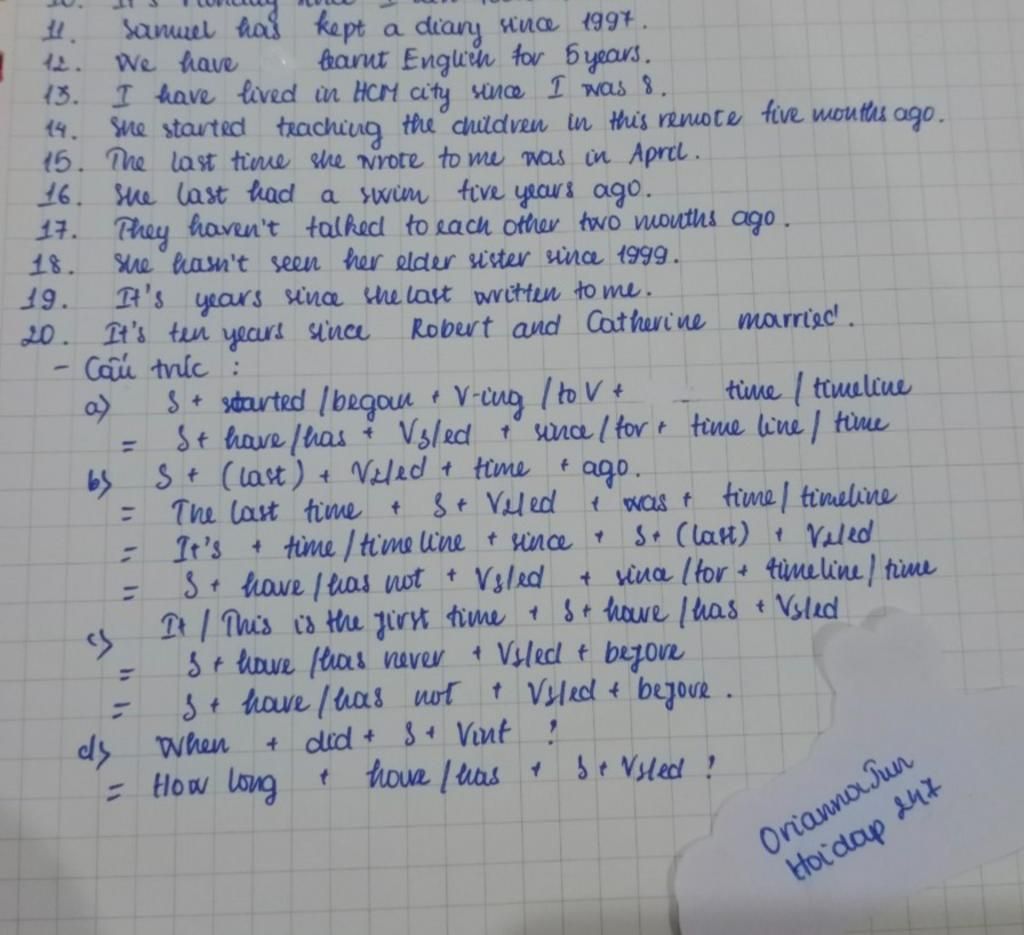 10. It's Monday since I
11. Samuel has kept a diary since 1997.
12. We have learnt English for 5 years.
13. I have lived in HCM city since I was 8.
14. She started teaching the children in this remote five months ago.
15. The last time she wrote to me was in April.
16. She last had a swim five years ago.
17. They haven't talked to each other two months ago.
18. She hasn't seen her elder sister since 1999.
19. It's years since she last written to me.
20. It's ten years since Robert and Catherine married.
- Cấu trúc :
a) S + started / began + V-ing / to V + time / timeline
= S + have / has + V3/ed + since / for + time line / time
b) S + (last) + V2/ed + time + ago.
= The last time + S + V2/ed + was + time / timeline
= It's + time / time line + since + S + (last) + V2/ed
= S + have / has not + V3/ed + since / for + timeline / time
c) It / This is the first time + S + have / has + V3/ed
= S + have / has never + V3/ed + before
= S + have / has not + V3/ed + before.
d) When + did + S + Vinf ?
= How long + have / has + S + V3/ed ?
OriannaJun
Hoidap 247